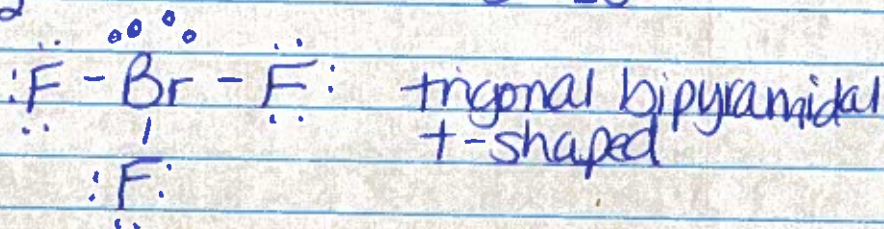 :F - Br - F: trigonal bipyramidal
| t-shaped
:F: